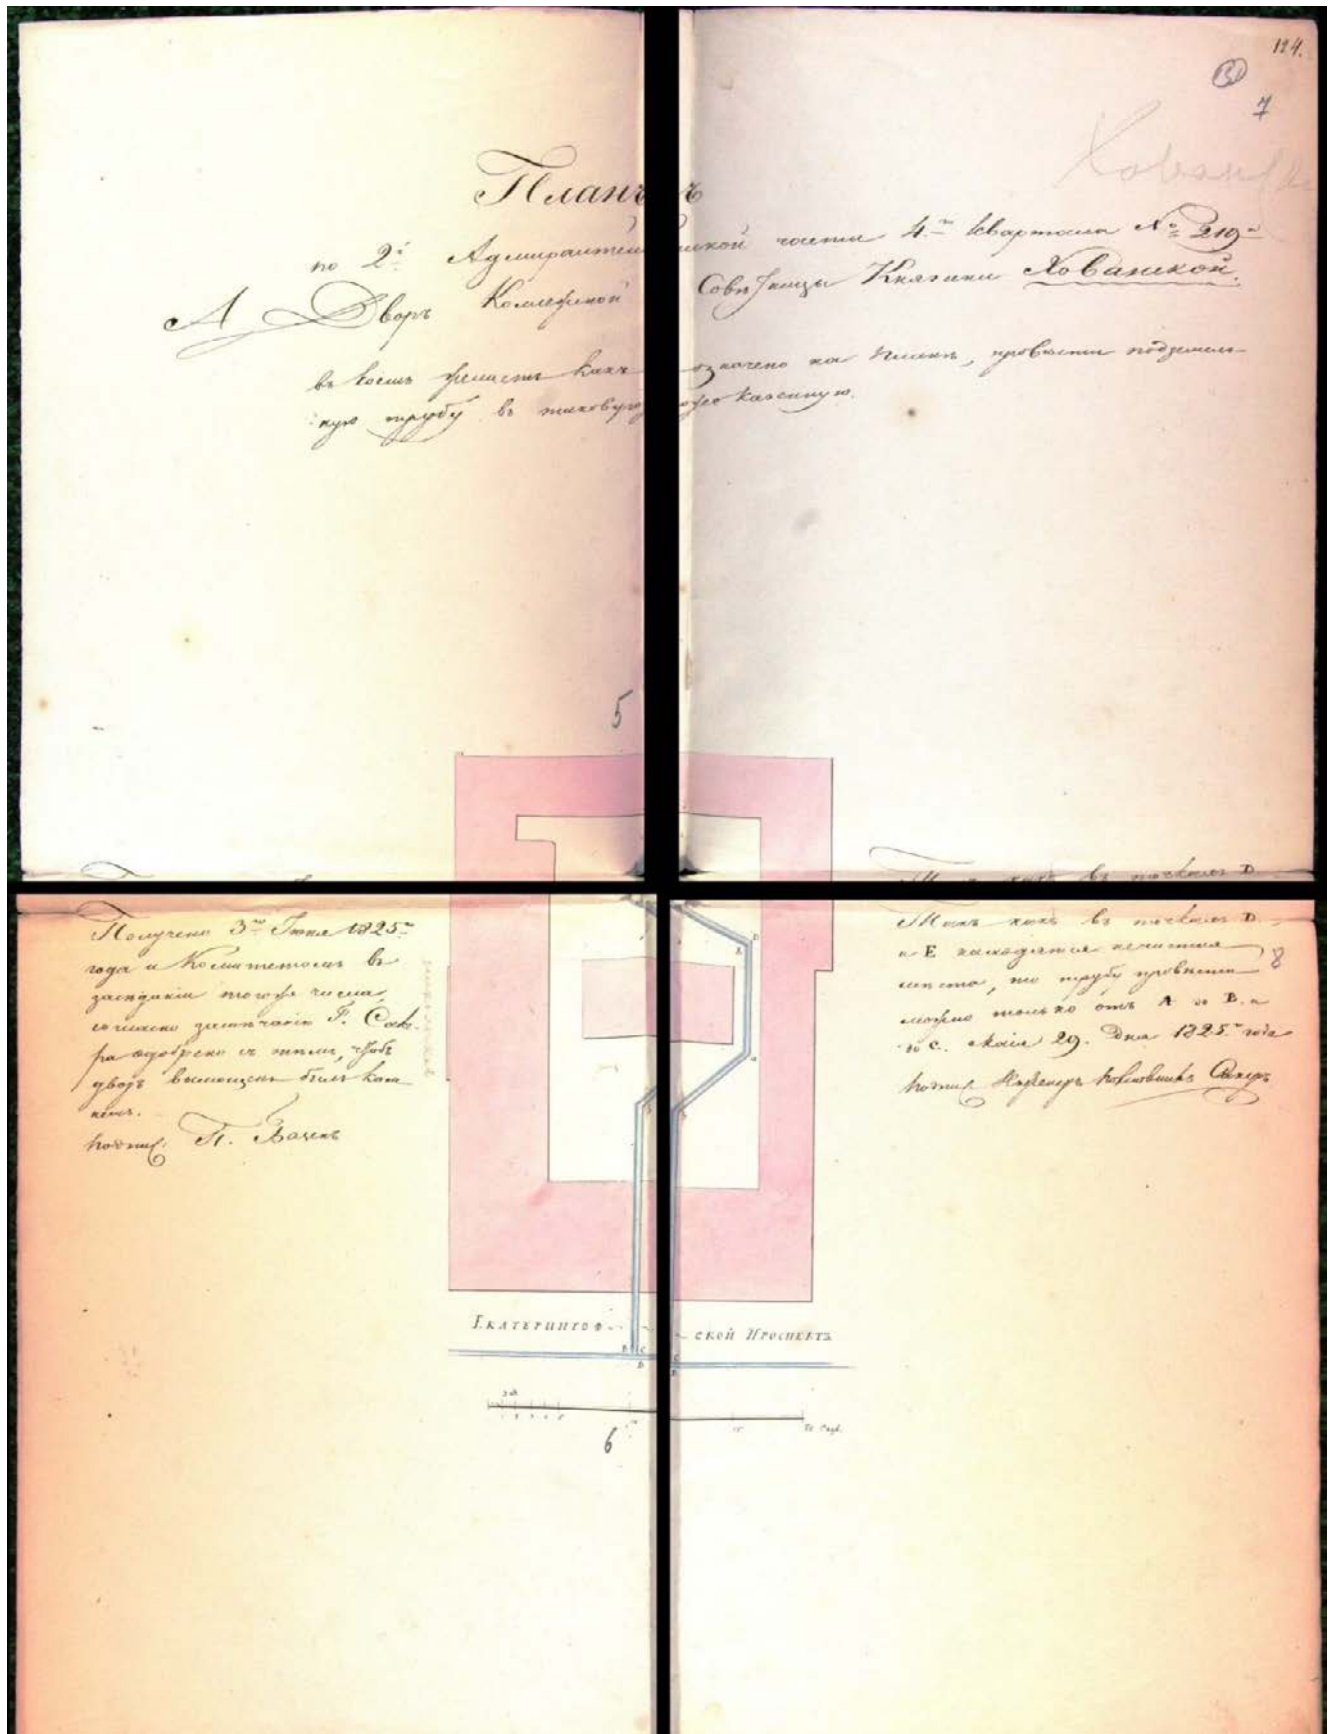 124.
7
Хованск
Планъ
по 2й Адмиралтейской части 4го Квартала № 219й
А Дворъ Коллежской Совѣтницы Княгини Хованской.
въ коемъ желаетъ какъ означено на планѣ, провести подземель-
ную трубу въ таковую же казенную.
5
Получено 3го Іюня 1825го
года и Комитетомъ въ
засѣданіи того же числа
согласно замѣчанію Г.
одобрено съ тѣмъ, чтобъ
дворъ вымощенъ былъ кам
немъ.
подпис. П. Базенъ
Такъ какъ въ точкахъ D.
и E находятся нечистыя
мѣста, то трубу провести
можно только отъ A до B. и
до C. Маія 29. Дня 1825го года
подпис. Инженеръ Полковникъ
8
D
ЕКАТЕРИНГОФ-
СКОЙ ПРОСПЕКТЪ
B C
6
15